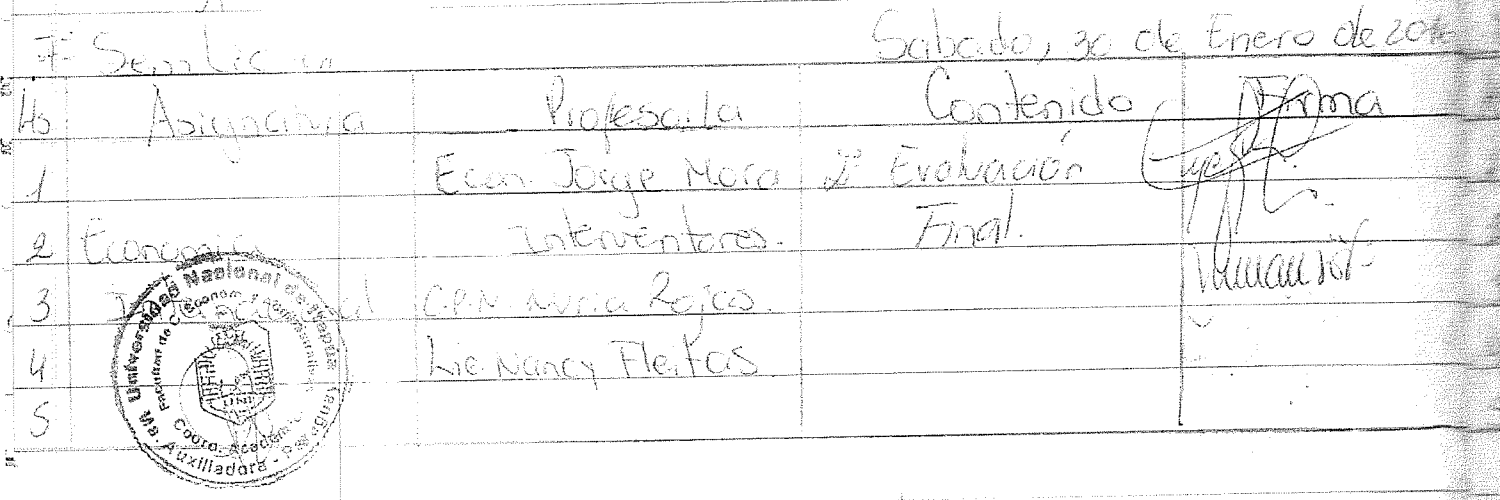 Sabado, 30 de Enero de
Ho Asignatura Profesor/a Contenido Firma
1 Econ. Jorge Mora 2ª Evaluación
2 Economía Interventores. Final.
3 Internacional C.P.N. Nuria Rojas.
4 Lic. Nancy Fleitas.
5
Universidad Nacional de Itapúa
Facultad de C. Econom. y Administrativas
UNI
Coord. Academica
Ma. Auxiliadora